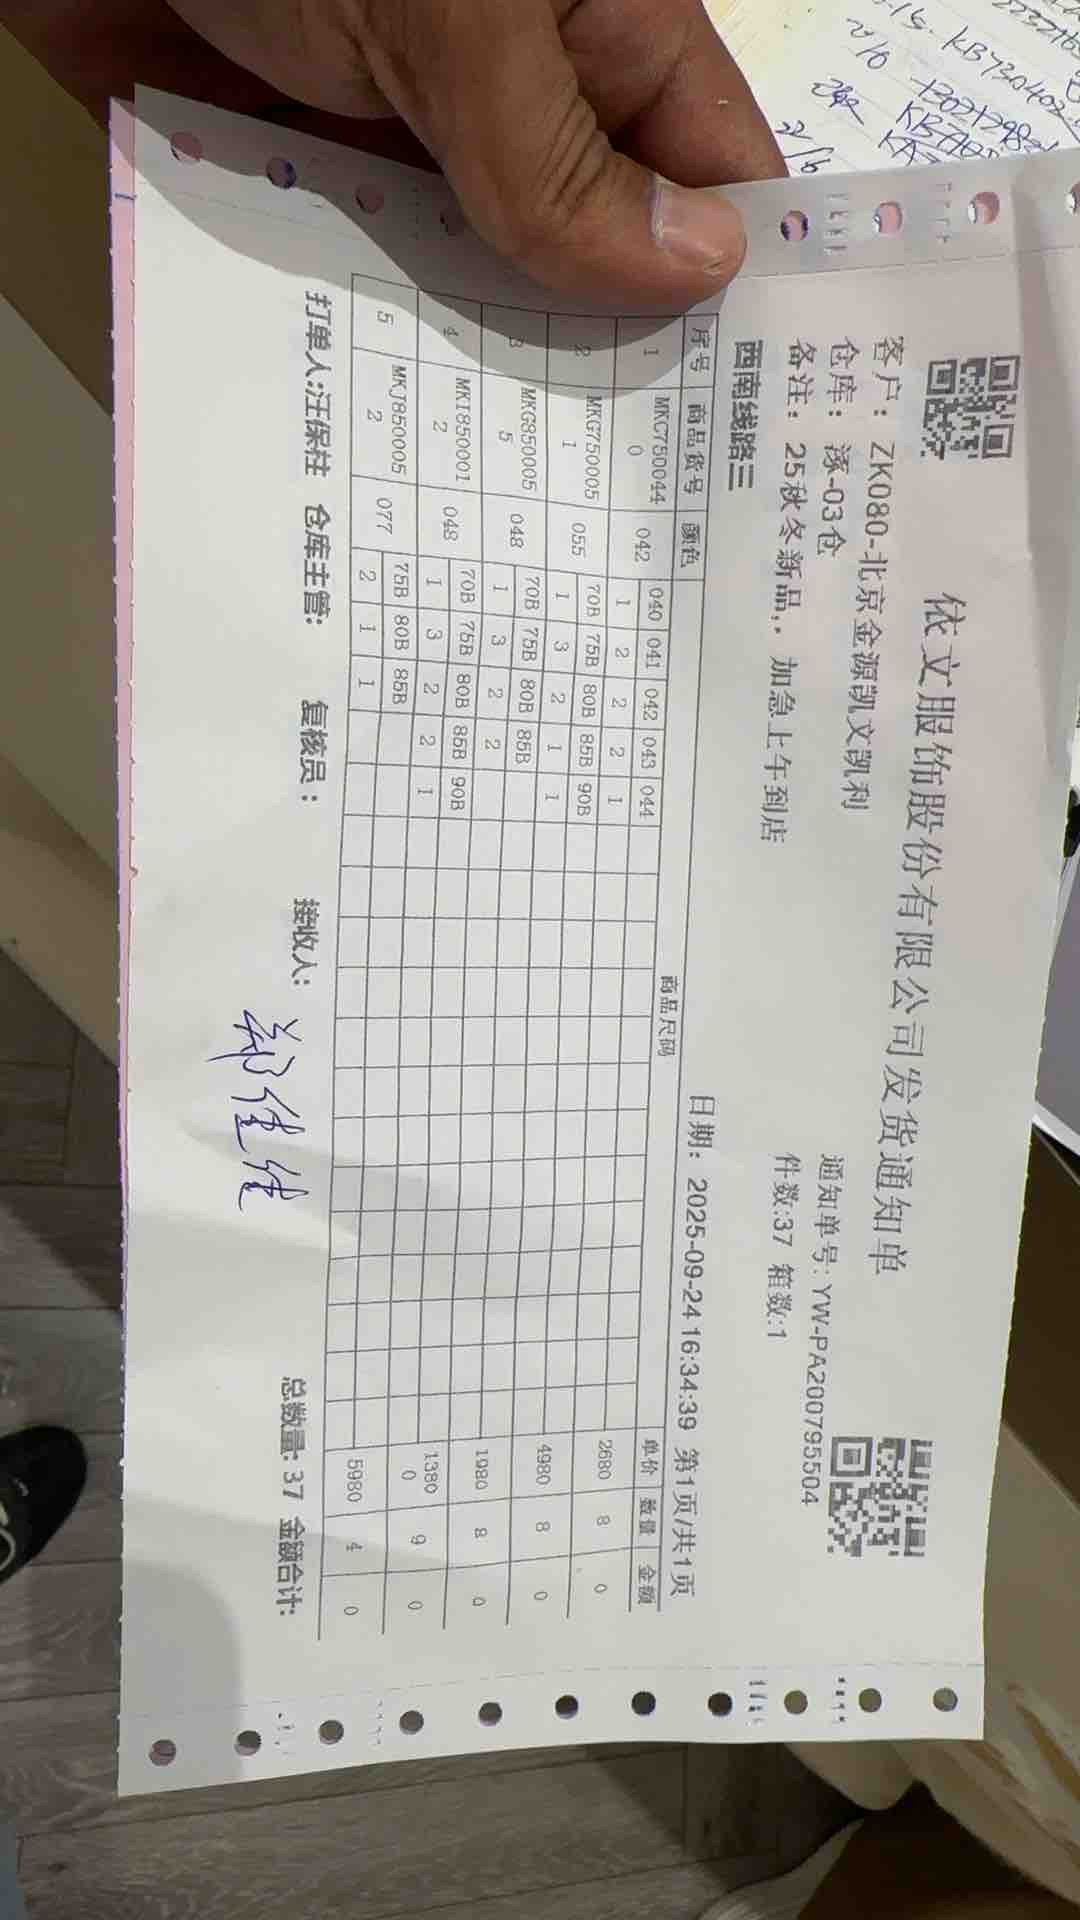 依文服饰股份有限公司发货通知单
客户： ZK080-北京金源凯文凯利
通知单号: YW-PA200795504
仓库： 涿-03仓
件数:37 箱数:1
备注： 25秋冬新品,. 加急上午到店
西南线路三
日期: 2025-09-24 16:34:39 第1页/共1页
序号 商品货号 颜色 商品尺码 单价 数量 金额
1 MKC7500440 042 040 041 042 043 044 2680 8 0
1 2 2 2 1
2 MKG7500051 055 70B 75B 80B 85B 90B 4980 8 0
1 3 2 1 1
3 MKG8500055 048 70B 75B 80B 85B 1980 8 0
1 3 2 2
4 MKI8500012 048 70B 75B 80B 85B 90B 13800 9 0
1 3 2 2 1
5 MKJ8500052 077 75B 80B 85B 5980 4 0
2 1 1
打单人:汪保柱 仓库主管: 复核员： 接收人: 郑佳佳 总数量: 37 金额合计: